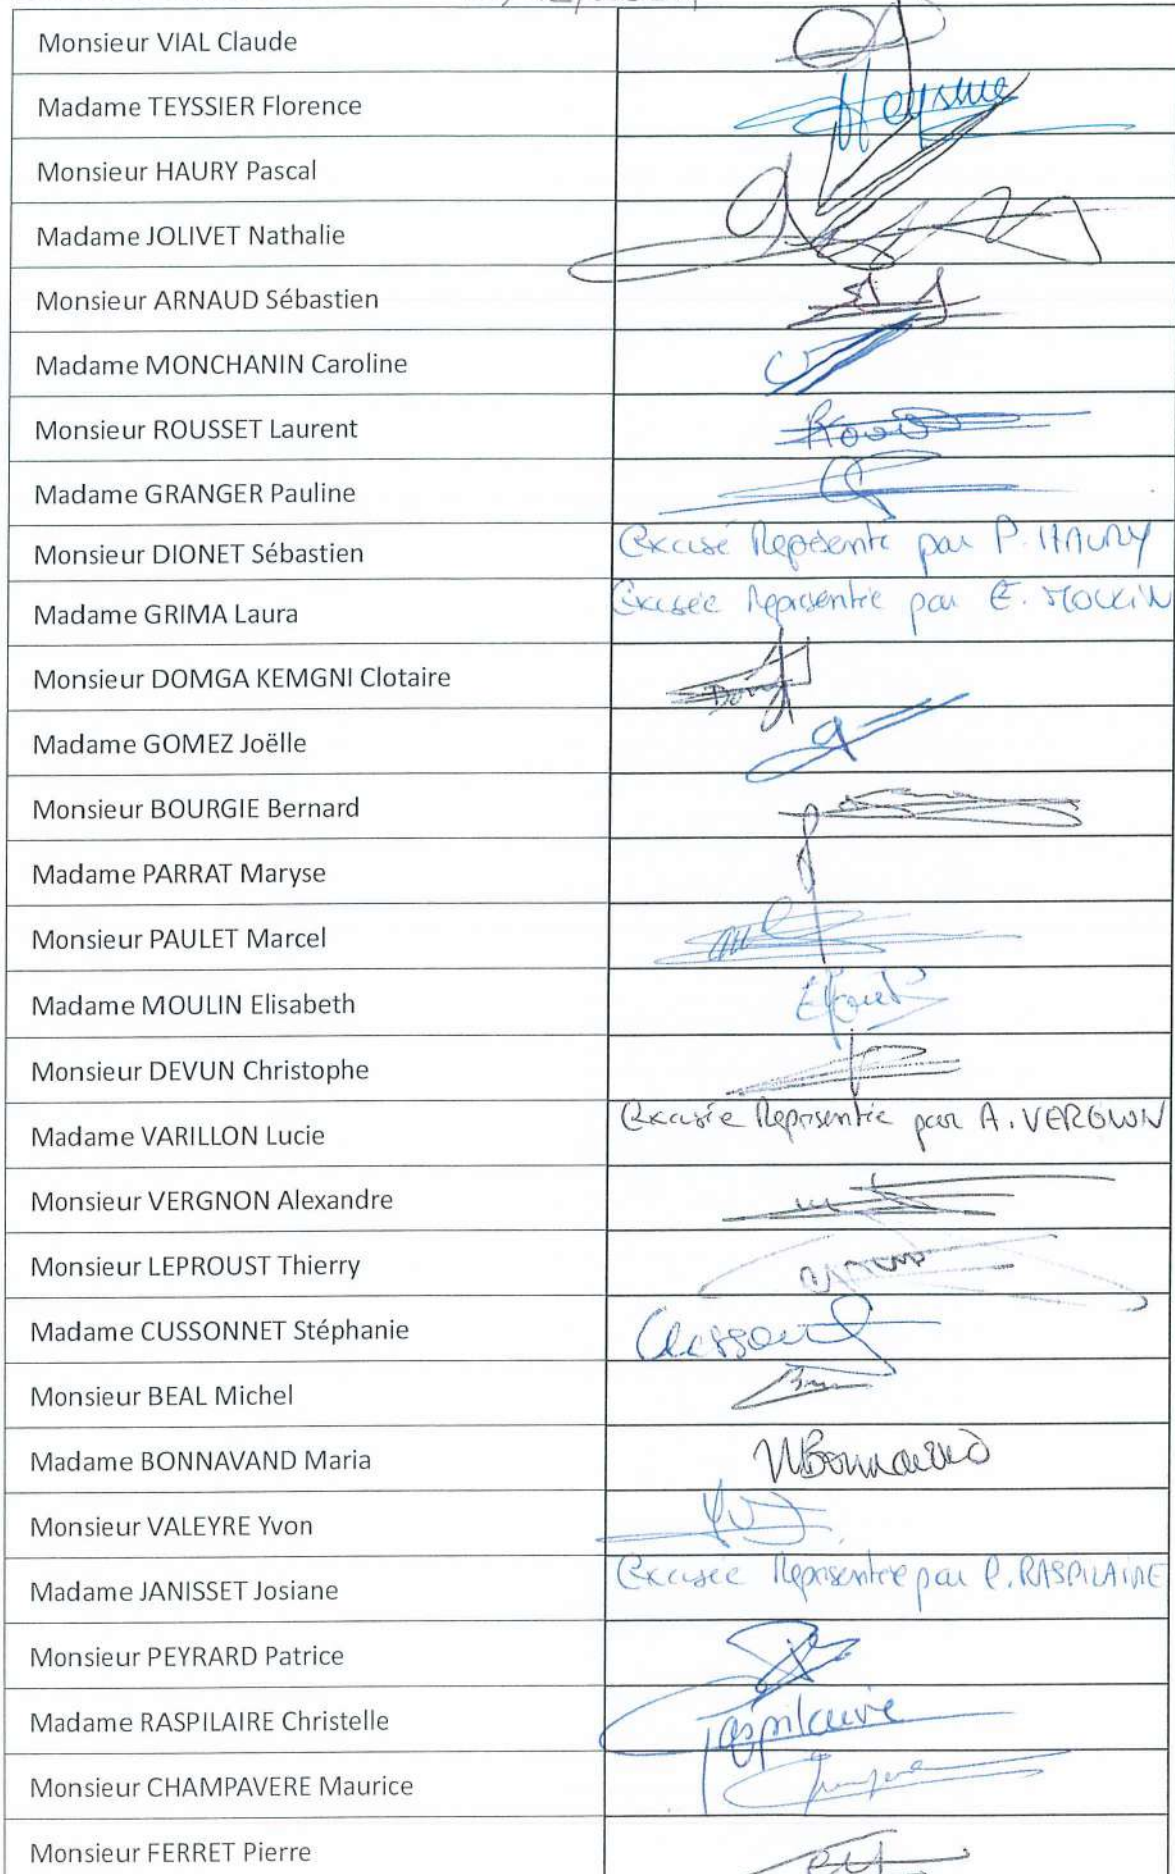 Monsieur VIAL Claude
Madame TEYSSIER Florence
Monsieur HAURY Pascal
Madame JOLIVET Nathalie
Monsieur ARNAUD Sébastien
Madame MONCHANIN Caroline
Monsieur ROUSSET Laurent
Madame GRANGER Pauline
Monsieur DIONET Sébastien Excusé Représenté par P. HAURY
Madame GRIMA Laura Excusée Représentée par E. MOULIN
Monsieur DOMGA KEMGNI Clotaire
Madame GOMEZ Joëlle
Monsieur BOURGIE Bernard
Madame PARRAT Maryse
Monsieur PAULET Marcel
Madame MOULIN Elisabeth
Monsieur DEVUN Christophe
Madame VARILLON Lucie Excusée Représentée par A. VERGNON
Monsieur VERGNON Alexandre
Monsieur LEPROUST Thierry
Madame CUSSONNET Stéphanie
Monsieur BEAL Michel
Madame BONNAVAND Maria MBonnavand
Monsieur VALEYRE Yvon
Madame JANISSET Josiane Excusée Représentée par C. RASPILAIRE
Monsieur PEYRARD Patrice
Madame RASPILAIRE Christelle raspilaire
Monsieur CHAMPAVERE Maurice
Monsieur FERRET Pierre